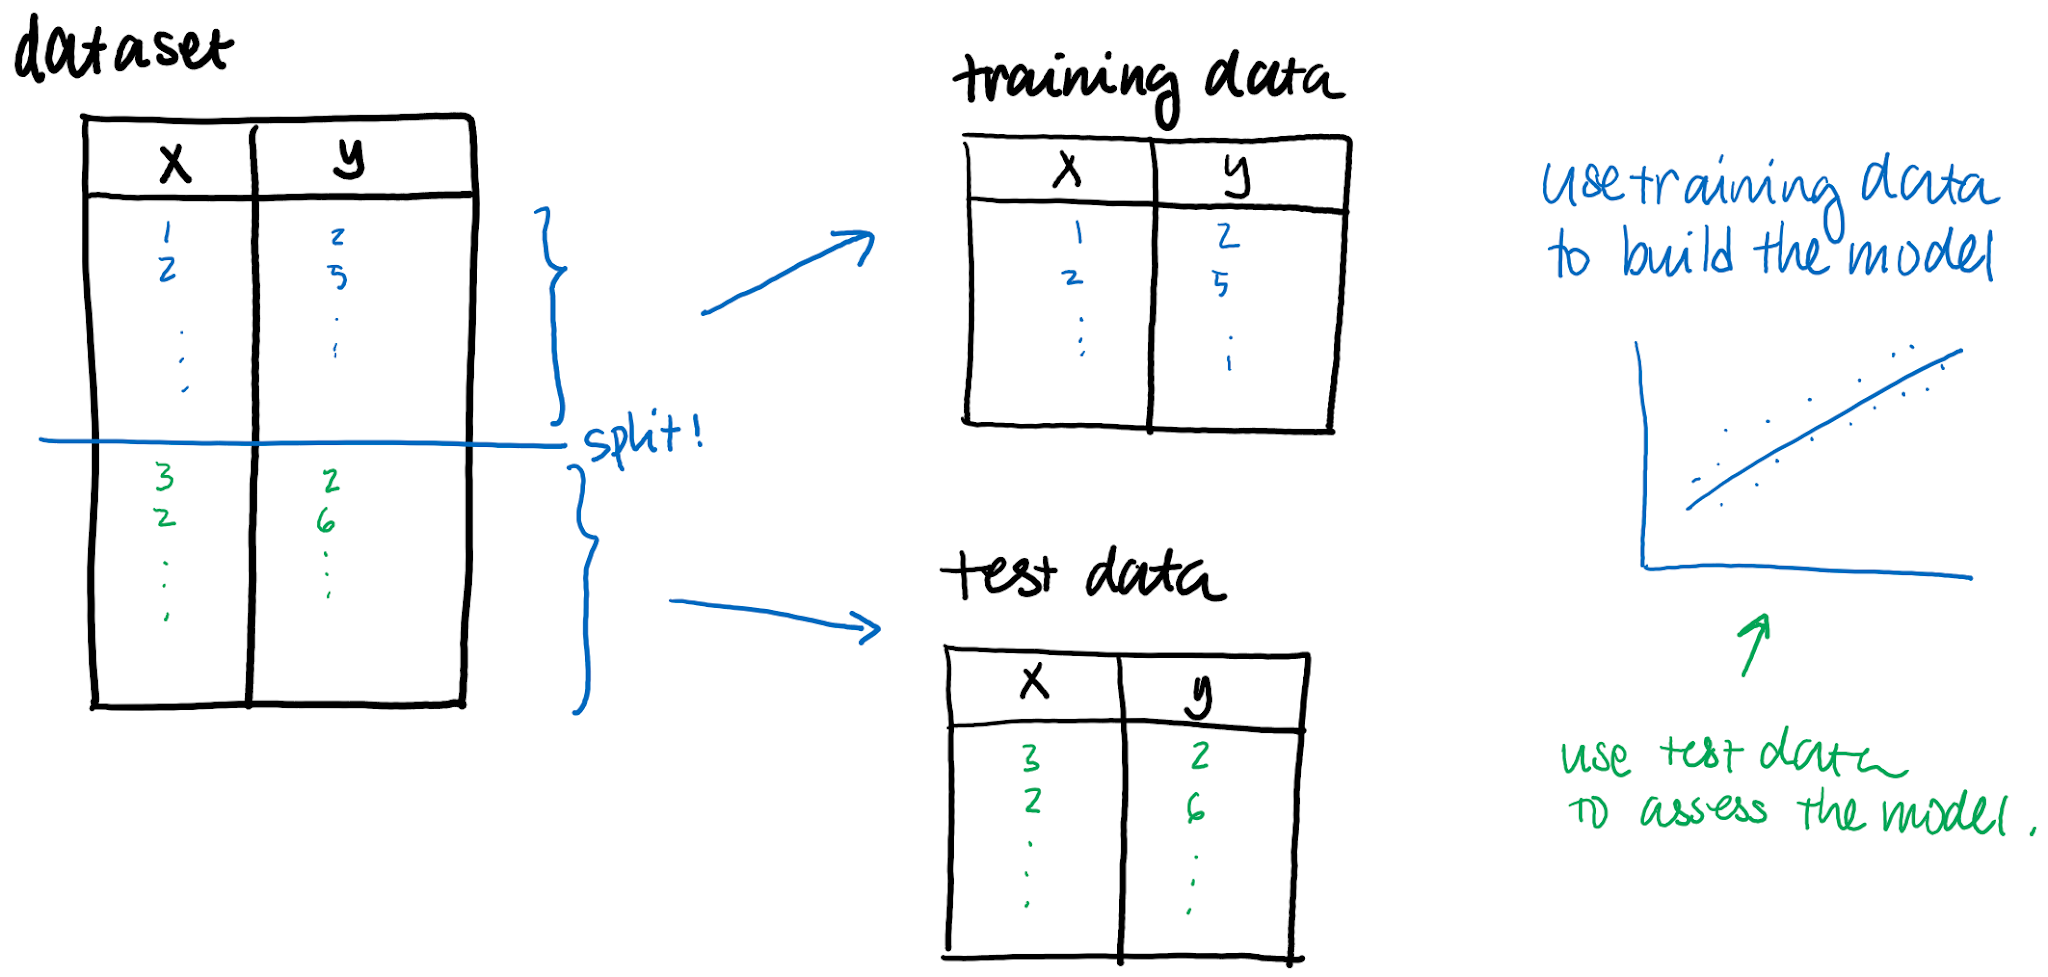 dataset
x y
1 2
2 5
split!
3 2
2 6
training data
x y
1 2
2 5
test data
x y
3 2
2 6
use training data
to build the model
use test data
to assess the model.